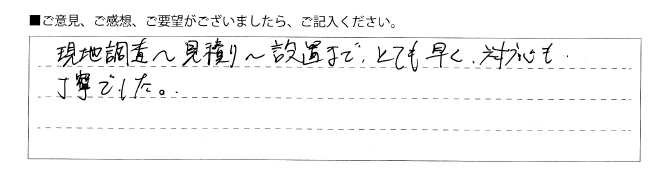 ■ご意見、ご感想、ご要望がございましたら、ご記入ください。
現地調査～見積り～設置まで、とても早く、対応も
丁寧でした。